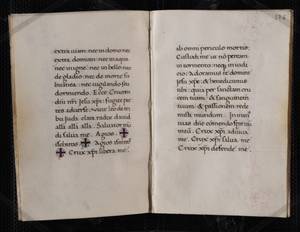 extra uiam: nec in domo nec
extra domum: nec in aqua
nec in igne: nec in bello nec
de gladio: nec de morte su
bitanea: nec uigilando seu
dormiendo. Ecce Crucem
dñi nr̃i Jesu xp̃i: fugite par
tes aduerse: uicit leo de tri
bu juda: clara radix dauid
alla alla alla. Saluator mũ
di salua me. Agios ✠
Agios
✠ Crux xp̃i libera me
ab omni periculo mortis.
Custodi me
in tormento: neq; in iudi
cio. Adoramus te domine
Jesu xp̃e: & benedicimus
tibi: quia per sanctam cru
cem tuam: & sanguinem
tuum: & passionem rede
misti mundum. In
meũ. Crux xp̃i adiuua
me. Crux xp̃i salua me.
Crux xp̃i defende me.